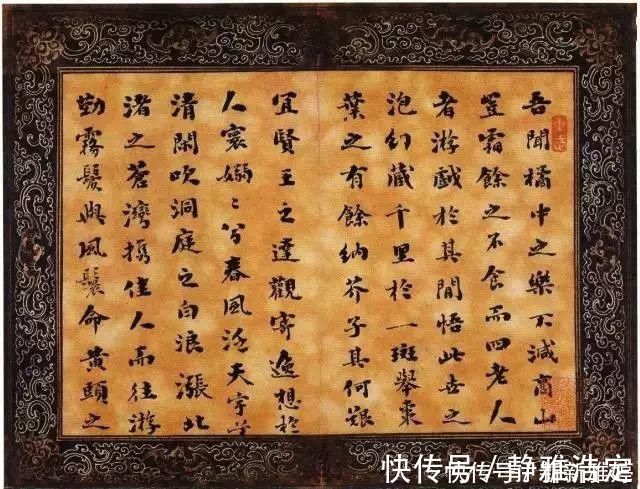 吾聞橘中之樂不減商山
豈霜餘之不食而四老人
者游戲於其間悟此世之
泡幻藏千里於一斑舉棗
葉之有餘納芥子其何艱
宜賢王之達觀寄逸想於
人寰嫋々兮春風泛天宇兮
清閑吹洞庭之白浪漲北
渚之蒼灣攜佳人而往游
勤霧鬢與風鬟命黃頭之
快传号 / 静雅